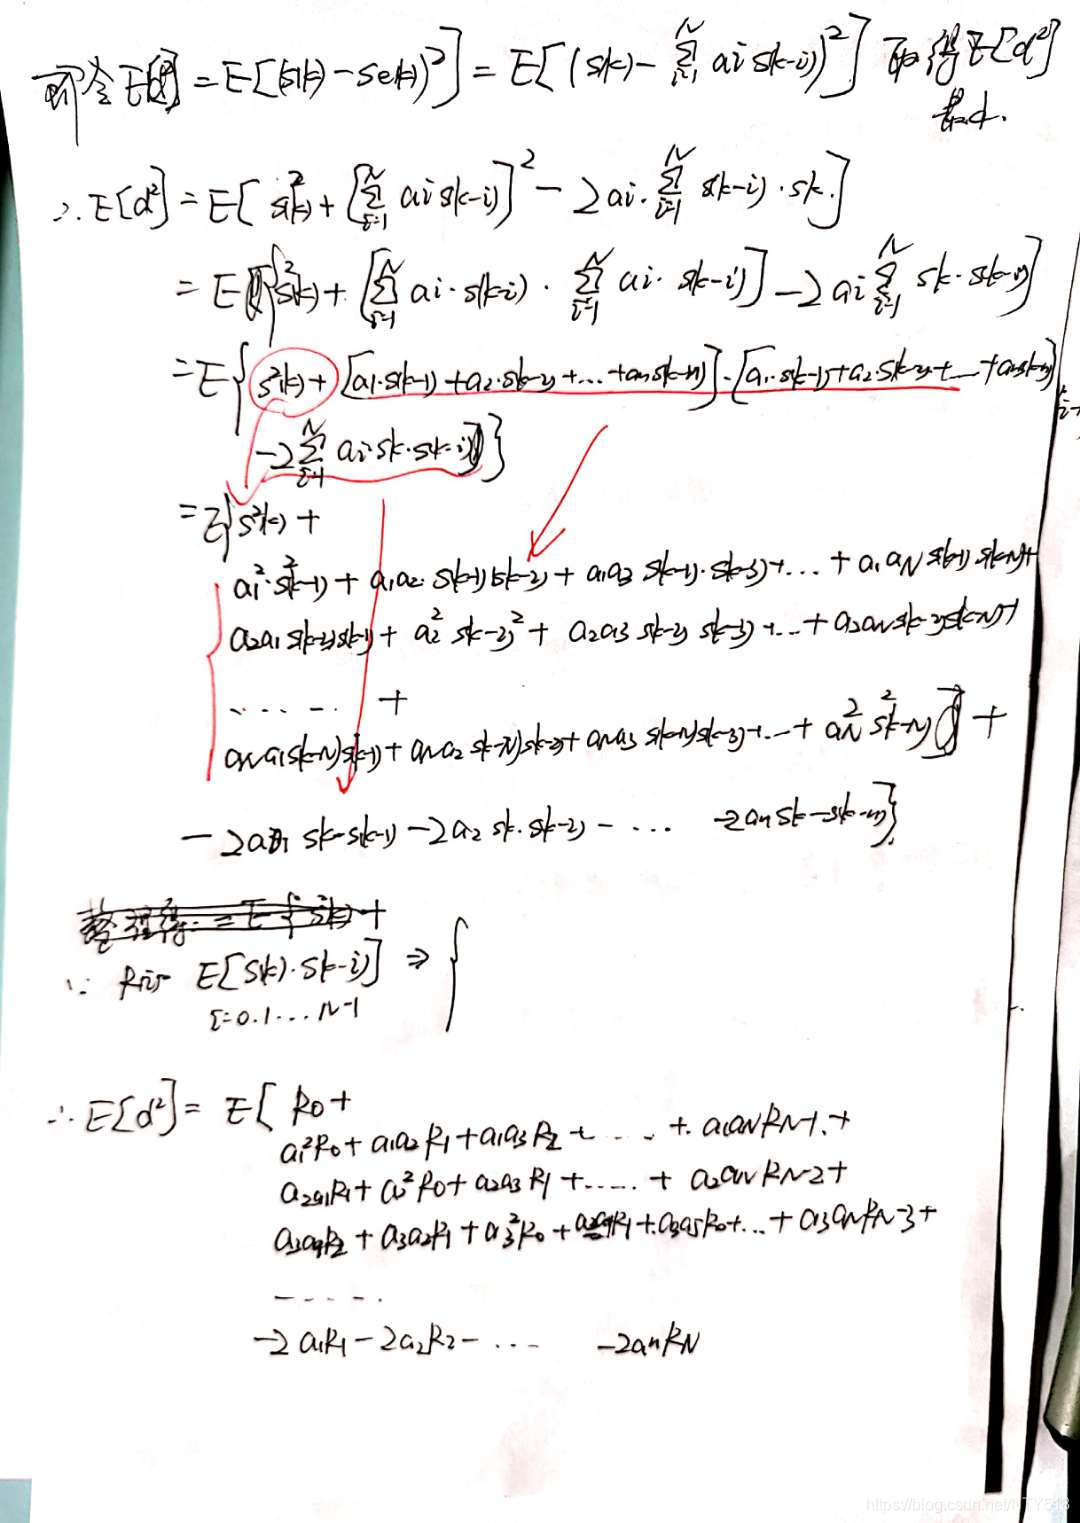 可令E[d²] = E[(s(k)-se(k))²] = E[(s(k)-Σ_{i=1}^{N} ai s(k-i))²] 取得E[d²]
最小.
∴ E[d²] = E[s²(k) + [Σ_{i=1}^{N} ai s(k-i)]² - 2ai·Σ_{i=1}^{N} s(k-i)·sk]
= E{s²(k) + [Σ_{i=1}^{N} ai·s(k-i)·Σ_{i=1}^{N} ai·s(k-i)] - 2ai Σ_{i=1}^{N} sk·s(k-i)}
= E{s²(k) + [a1·s(k-1)+a2·s(k-2)+...+an s(k-n)]·[a1·s(k-1)+a2·s(k-2)+...+an s(k-n)]
-2Σ_{i=1}^{N} ai·sk·s(k-i)}
= E{s²(k) +
a1²·s²(k-1) + a1a2·s(k-1)s(k-2) + a1a3 s(k-1)·s(k-3)+... + a1aN s(k-1)s(k-N)+
a2a1s(k-2)s(k-1) + a2² s(k-2)² + a2a3 s(k-2) s(k-3)+...+a2aN s(k-2)s(k-N)+
...... +
aNa1s(k-N)s(k-1)+ aNa2 s(k-N)s(k-2)+ aNa3 s(k-N)s(k-3)+...+ aN² s²(k-N) +
-2a1 sk·s(k-1) -2a2 sk·s(k-2) - ... -2an sk·s(k-n)}
∵ R(i)= E[s(k)·s(k-i)] ⇒ {
i=0.1...N-1
∴ E[d²] = E[ R0 +
a1²R0 + a1a2R1 + a1a3R2 + .... + a1aN RN-1 +
a2a1R1 + a2²R0 + a2a3 R1 +..... + a2aN RN-2+
a3a1R2 + a3a2R1 + a3²R0 + a3a4R1 + a3a5R0+...+ a3aN RN-3+
......
-2a1R1 - 2a2R2 - ... -2an RN